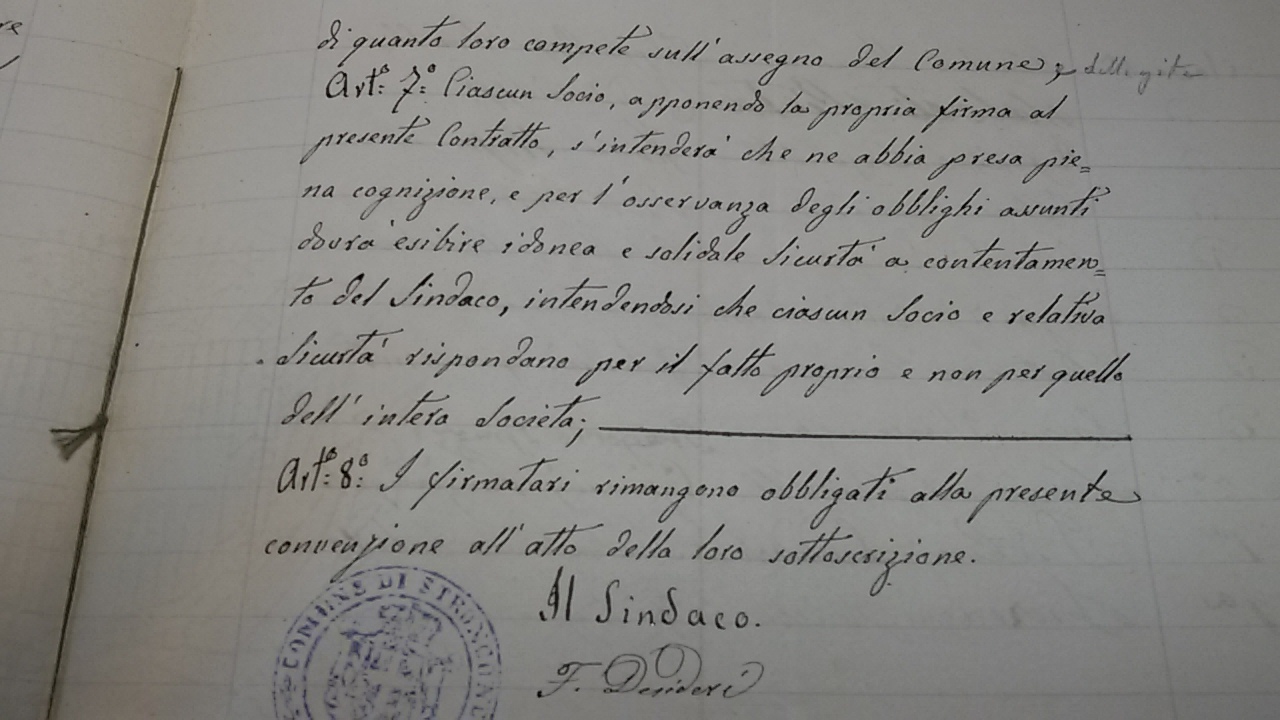 re
di quanto loro compete sull'assegno del Comune; e delle gite
Art.º 7º: Ciascun Socio, apponendo la propria firma al
presente Contratto, s'intenderà che ne abbia presa pie=
na cognizione, e per l'osservanza degli obblighi assunti
dovrà esibire idonea e solidale sicurtà a contentamen=
to del Sindaco, intendendosi che ciascun Socio e relativa
Sicurtà rispondano per il fatto proprio e non per quello
dell'intera Società;
Art.º 8º: I firmatari rimangono obbligati alla presente
convenzione all'atto della loro sottoscrizione.
COMUNE DI STRONCONE
Il Sindaco.
F. Desideri